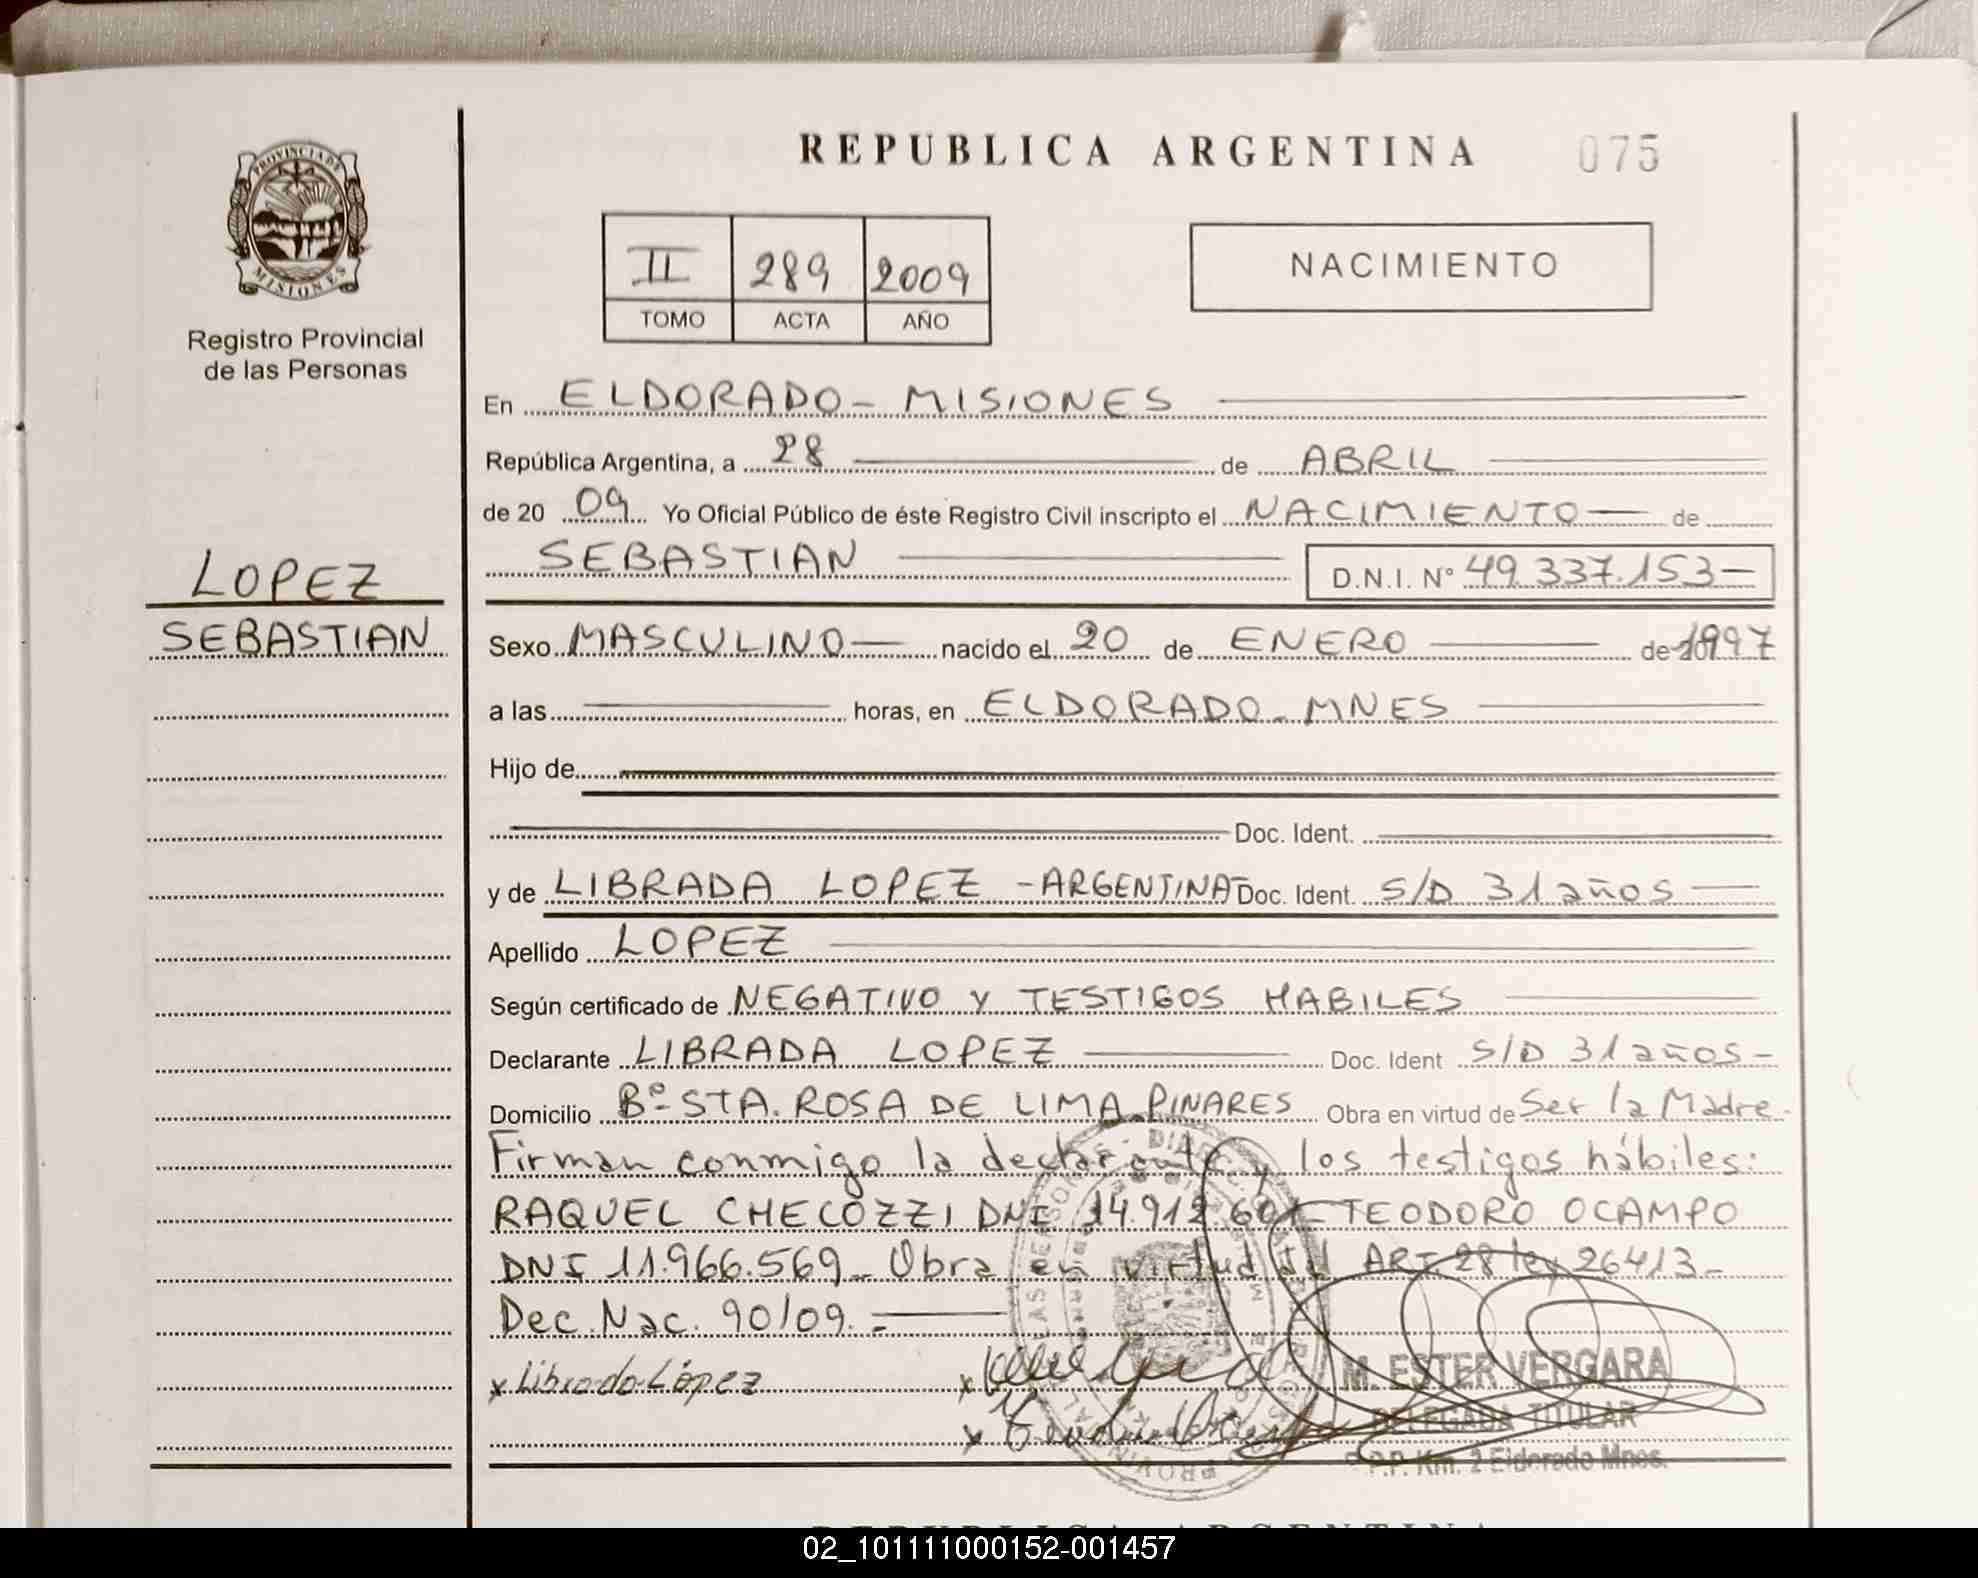 REPUBLICA ARGENTINA 075
PROVINCIA DE
MISIONES
Registro Provincial
de las Personas
II 289 2009
TOMO ACTA AÑO
NACIMIENTO
En ELDORADO - MISIONES
República Argentina, a 28 de ABRIL
de 20 09 Yo Oficial Público de éste Registro Civil inscripto el NACIMIENTO de
SEBASTIAN D.N.I. Nº 49.337.153-
LOPEZ
SEBASTIAN
Sexo MASCULINO nacido el 20 de ENERO de 1997
a las horas, en ELDORADO - MNES
Hijo de
Doc. Ident.
y de LIBRADA LOPEZ - ARGENTINA- Doc. Ident. S/D 31 años
Apellido LOPEZ
Según certificado de NEGATIVO Y TESTIGOS HABILES
Declarante LIBRADA LOPEZ Doc. Ident S/D 31 años -
Domicilio Bº STA. ROSA DE LIMA-PINARES Obra en virtud de Ser la Madre.
Firman conmigo la declarante y los testigos hábiles:
RAQUEL CHECOZZI DNI 14.912.601- TEODORO OCAMPO
DNI 11.966.569- Obra en virtud del ART. 28 ley 26413-
Dec. Nac. 90/09.-
x Librada López x
x
M. ESTER VERGARA
DELEGADA TITULAR
R.P.P. Km. 2 Eldorado Mnes.
REPUBLICA ARGENTINA
02_101111000152-001457